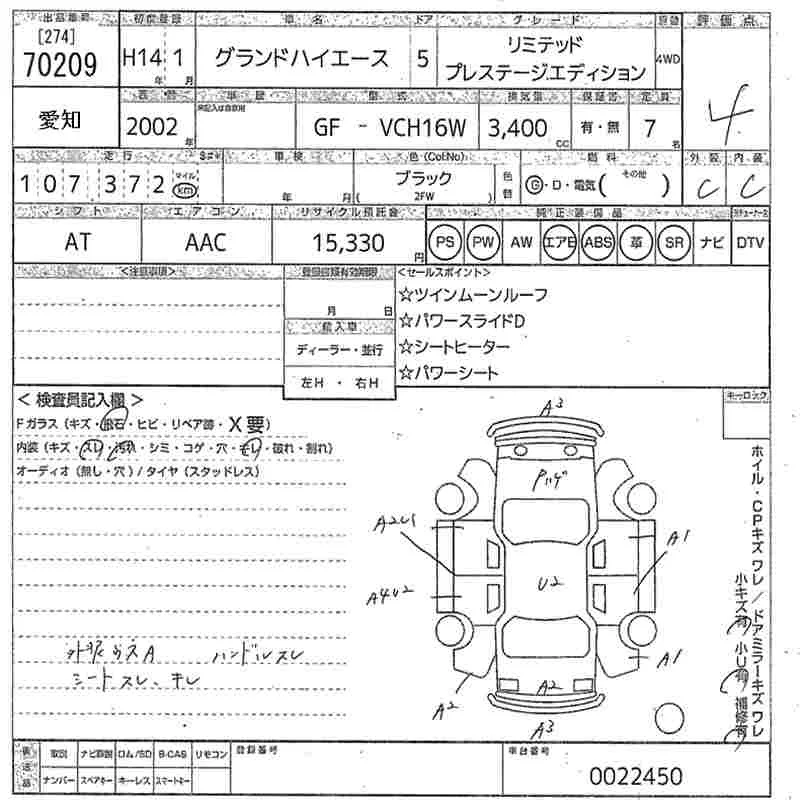 出品番号 初度登録 車名 ドア グレード 駆動 評価点
[274]
70209 H14年 1月 グランドハイエース 5 リミテッド 4WD 4
プレステージエディション
年式 車歴 型式 排気量 保証書 定員
愛知 2002年 未記入は自家用 GF - VCH16W 3,400cc 有・無 7名
走行 車検 色(Col.No) 燃料 外装 内装
107,372 マイル km 年 月 ブラック 色替 G・D・電気( その他 ) C C
( 2FW )
シフト エアコン リサイクル預託金 純正装備品
AT AAC 15,330円 PS PW AW エアB ABS 革 SR ナビ DTV
<注意事項> <セールスポイント>
月 日 ☆ツインムーンルーフ
輸入車 ☆パワースライドD
ディーラー・並行 ☆シートヒーター
左H ・ 右H ☆パワーシート
< 検査員記入欄 > キーロック
Fガラス (キズ・飛石・ヒビ・リペア跡・X要)
内装 (キズ・スレ・汚れ・シミ・コゲ・穴・モレ・破れ・割れ)
オーディオ (無し・穴) / タイヤ (スタッドレス)
A3
A2U1 A1
U2
A4U2
A1
A2 A2
A3
ハンドルスレ
シートスレ、キレ
ホイル・CPキズ ワレ/ドアミラーキズ ワレ
小キズ有 小U有 補修有
後送品 取説 ナビ取説 ロム/SD B-CAS リモコン 登録番号 車台番号
ナンバー スペアキー キーレス スマートキー 0022450